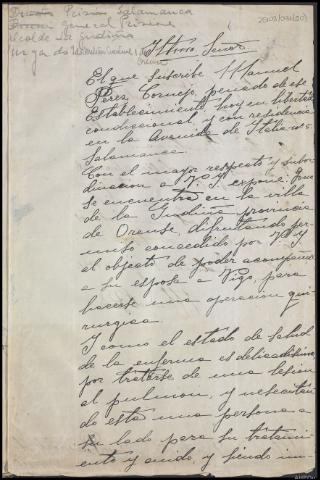 Prision Salamanca
General Prisiones
Alcalde La Gudiña
Orense
Iltmo. Señor
El que suscribe Manuel
Pérez Cornejo, penado de ese
Establecimiento hoy en libertad
condicional, y con residencia
en la Avenida de Italia nº 5
Salamanca.
Con el mayor respeto y subor
dinacion a V. I. expone: Que
se encuentra en la villa
de la Gudiña provincia
de Orense, disfrutando per
miso concedido por V. I.
al objeto de poder acompañar
a su esposa a Vigo, para
hacerse una operacion qui
rurgica.
Y como el estado de salud
de la enferma es delicadisimo
por tratarse de una lesion
al pulmon, y necesitan
do esta una persona a
su lado para su tratami
ento y cuido, y siendo im-